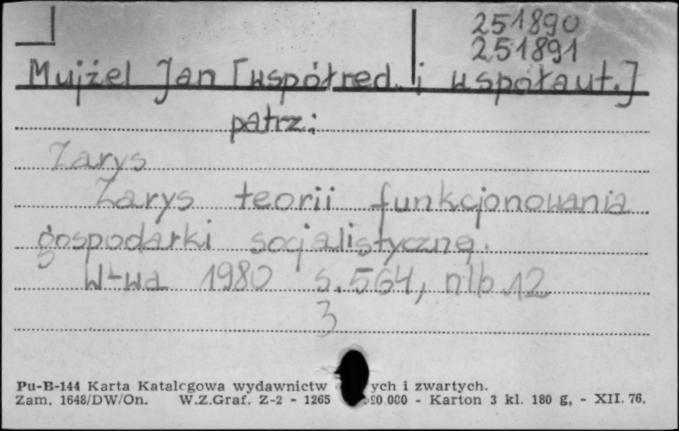 251890
251891
Mujżel Jan [współred. i współaut.]
patrz:
Zarys
Zarys teorii funkcjonowania
gospodarki socjalistyczne.
W-wa 1980 s. 564, nlb 12
3
Pu-B-144 Karta Katalogowa wydawnictw ych i zwartych.
Zam. 1648/DW/On. W.Z.Graf. Z-2 - 1265 90.000 - Karton 3 kl. 180 g, - XII. 76.